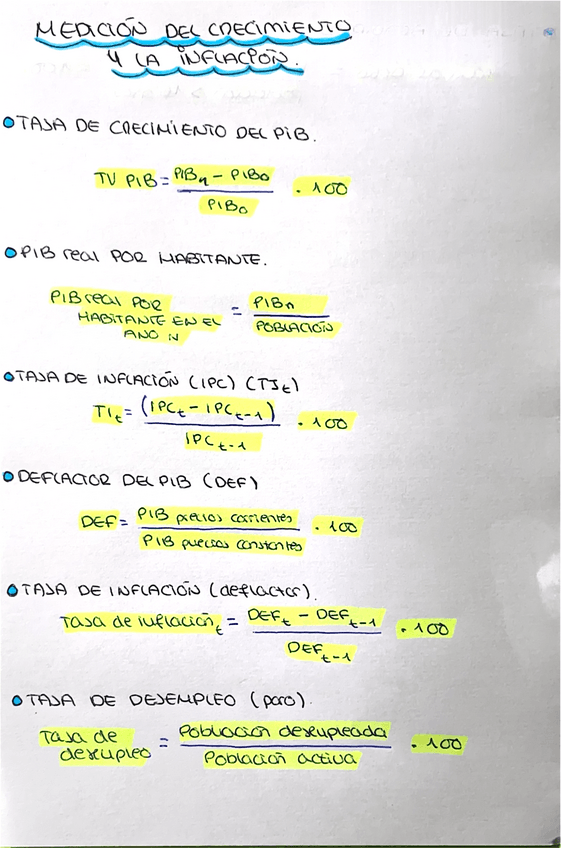 MEDICIÓN DEL CRECIMIENTO
Y LA INFLACIÓN.
TASA DE CRECIMIENTO DEL PIB.
TV PIB = (PIBn - PIB0) / PIB0 . 100
PIB real POR HABITANTE.
PIB real POR HABITANTE EN EL AÑO N = PIBn / POBLACIÓN
TASA DE INFLACIÓN (IPC) (TIt)
TIt = (IPCt - IPCt-1) / IPCt-1 . 100
DEFLACTOR DEL PIB (DEF)
DEF = PIB precios corrientes / PIB precios constantes . 100
TASA DE INFLACIÓN (deflactor).
Tasa de inflaciónt = (DEFt - DEFt-1) / DEFt-1 . 100
TASA DE DESEMPLEO (paro).
Tasa de desempleo = Población desempleada / Población activa . 100